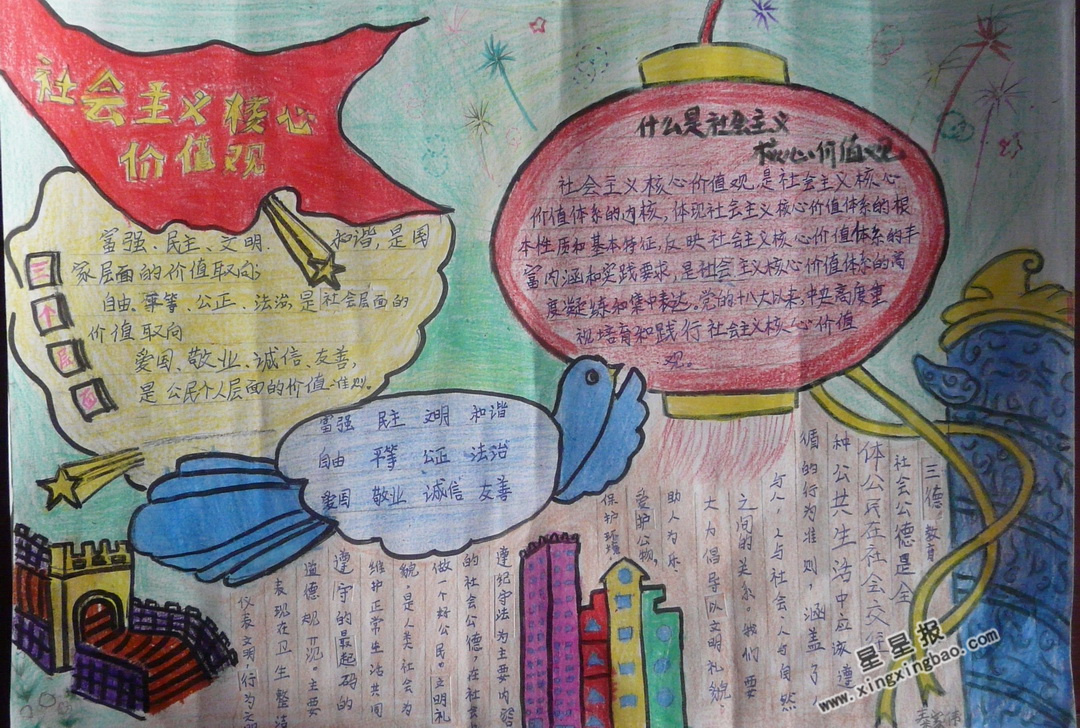 社会主义核心
价值观
富强、民主、文明、和谐,是国
家层面的价值取向;
自由、平等、公正、法治,是社会层面的
价值取向
爱国、敬业、诚信、友善,
是公民个人层面的价值准则。
三
个
层
面
什么是社会主义
核心价值观
社会主义核心价值观是社会主义核心
价值体系的内核,体现社会主义核心价值体系的根
本性质和基本特征,反映社会主义核心价值体系的丰
富内涵和实践要求,是社会主义核心价值体系的高
度凝练和集中表达。党的十八大以来,中央高度重
视培育和践行社会主义核心价值
观。
富强 民主 文明 和谐
自由 平等 公正 法治
爱国 敬业 诚信 友善
三德。教育
社会公德是全
体公民在社会交往
种公共生活中应该遵
循的行为准则,涵盖了
与人,人与社会,人与自然
之间的关系。我们要
大力倡导以文明礼貌、
助人为乐、
爱护公物、
保护环境
遵纪守法为主要内容
的社会公德,在社会
做一个好公民。文明礼
貌是人类社会为
维护正常生活共同
遵守的最起码的
道德规范。主要
表现在卫生整洁
仪表文明,行为文明
星星报
www.xingxingbao.com